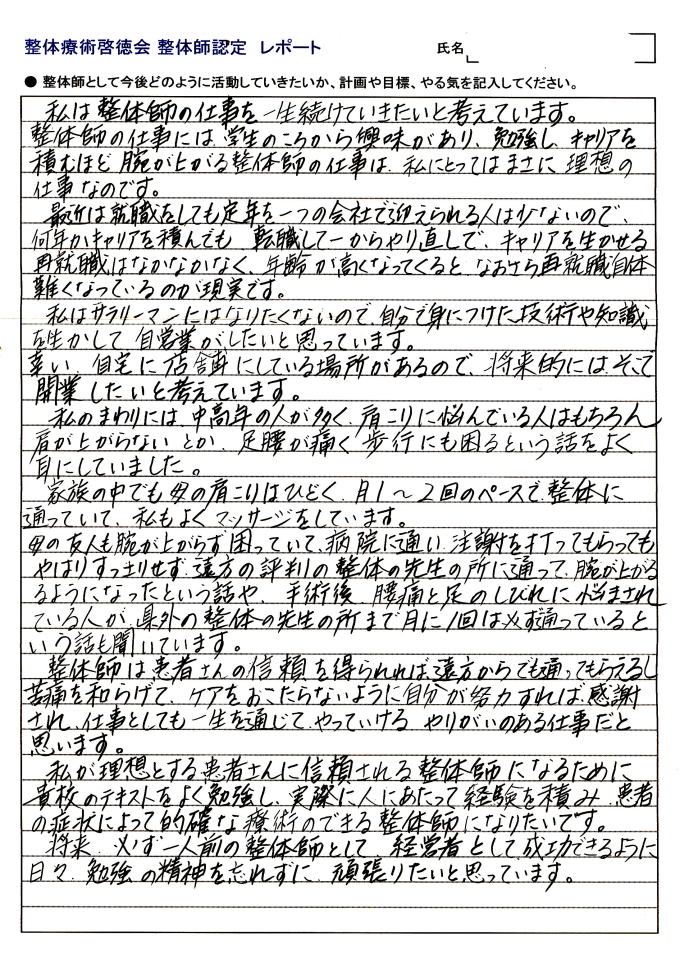 整体療術啓徳会 整体師認定 レポート 氏名
● 整体師として今後どのように活動していきたいか、計画や目標、やる気を記入してください。
私は整体師の仕事を一生続けていきたいと考えています。
整体師の仕事には、学生のころから興味があり、勉強し、キャリアを
積むほど腕が上がる整体師の仕事は、私にとってはまさに理想の
仕事なのです。
最近は就職をしても定年を一つの会社で迎えられる人は少ないので、
何年かキャリアを積んでも、転職して一からやり直しで、キャリアを生かせる
再就職はなかなかなく、年齢が高くなってくると、なおさら再就職自体
難しくなっているのが現実です。
私はサラリーマンにはなりたくないので、自分で身につけた技術や知識
を生かして、自営業がしたいと思っています。
幸い、自宅に店舗にしている場所があるので、将来的にはそこで
開業したいと考えています。
私のまわりには、中高年の人が多く、肩こりに悩んでいる人はもちろん
肩が上がらないとか、足腰が痛く歩行にも困るという話をよく
耳にしていました。
家族の中でも母の肩こりはひどく、月1〜2回のペースで整体に
通っていて、私もよくマッサージをしています。
母の友人も腕が上がらず困っていて、病院に通い、注謝を打ってもらっても
やはりすっきりせず、遠方の評判の整体の先生の所に通って、腕が上がる
るようになったという話や、手術後、腰痛と足のしびれに悩まされ
ている人が、県外の整体の先生の所まで月に1回は必ず通っていると
いう話も聞いています。
整体師は患者さんの信頼を得られれば、遠方からでも通ってもらえるし
苦痛を和らげて、ケアをおこたらないように自分が努力すれば、感謝
され、仕事としても一生を通じて、やっていける やりがいのある仕事だと
思います。
私が理想とする患者さんに信頼される整体師になるために
貴校のテキストをよく勉強し、実際に人にあたって経験を積み、患者
の症状によって的確な療術のできる整体師になりたいです。
将来、必ず一人前の整体師として、経営者として成功できるように
日々、勉強の精神を忘れずに、頑張りたいと思っています。